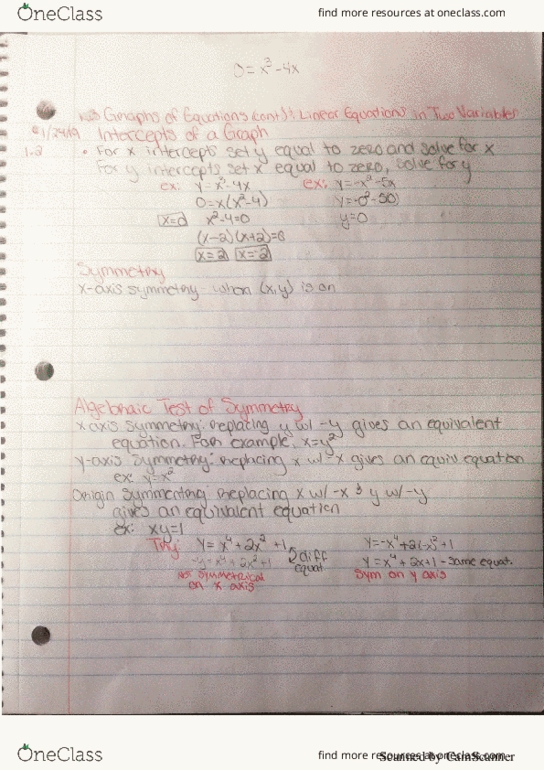 OneClass
find more resources at oneclass.com
0 = x³ - 4x
Graphs of Equations (cont): Linear Equations in Two Variables
Intercepts of a Graph
1.2
• For x intercepts set y equal to zero and solve for x
For y intercepts set x equal to zero, solve for y
ex: y = x³ - 4x
ex: y = -x² - 5x
0 = x(x² - 4)
y = -0² - 5(0)
x = 0
x² - 4 = 0
y = 0
(x-2)(x+2) = 0
x = 2
x = -2
Symmetry
x-axis symmetry - when (x,y) is on
Algebraic Test of Symmetry
x axis symmetry: replacing y w/ -y gives an equivalent
equation. For example, x = y²
y-axis symmetry: replacing x w/ -x gives an equiv equation
ex: y = x²
Origin Symmentry: replacing x w/ -x & y w/ -y
gives an equivalent equation
ex: xy = 1
Try: y = x⁴ + 2x² + 1
y = -x⁴ + 2(-x)² + 1
-y = x⁴ + 2x² + 1
2 diff
equat
y = x⁴ + 2x + 1 - same equat.
Not symmetrical
on x axis
Sym on y axis
OneClass
find more resources at oneclass.com
Scanned by CamScanner